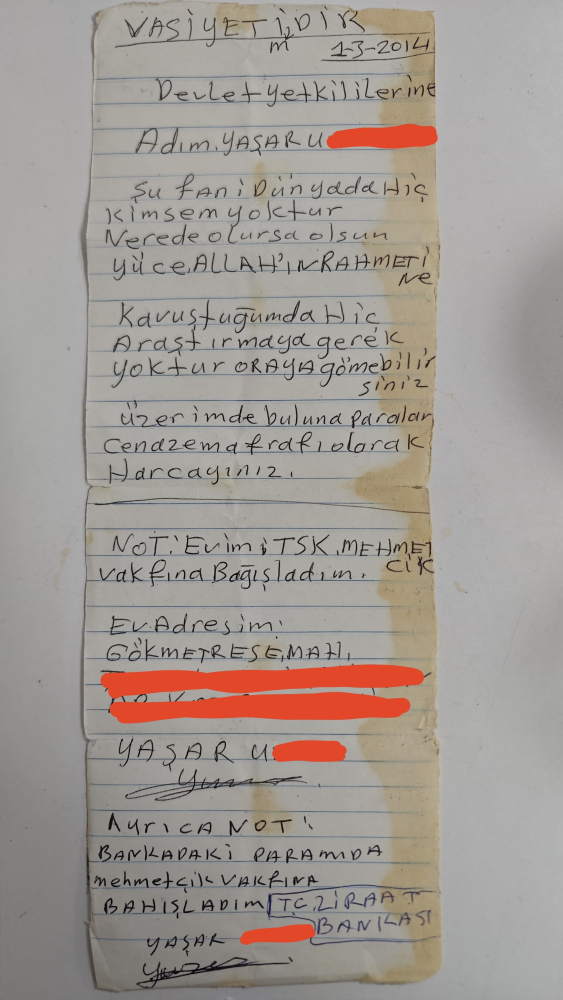 VASİYETİMDİR
1-3-2014
Devlet yetkililerine
Adım. YAŞAR U
Şu fani Dünyada Hiç
Kimsem yoktur
Nerede olursa olsun
yüce. ALLAH'IN RAHMETİ
Ne
Kavuştuğumda Hiç
Araştırmaya gerek
yoktur ORAYA gömebilir
siniz
üzerimde buluna paralar
cenazemafrafı olarak
Harcayınız.
NOT: Evimi TSK. MEHMET
CİK
vakfına Bağışladım.
Ev. Adresim:
GÖKMETRESE. MAH.
YAŞAR U
AyrıcA NOT:
BANKADAKİ PARAMIDA
mehmetçik VAKfıNA
BAHIŞLADIM T.C. ZİRAAT
BANKASI
YAŞAR